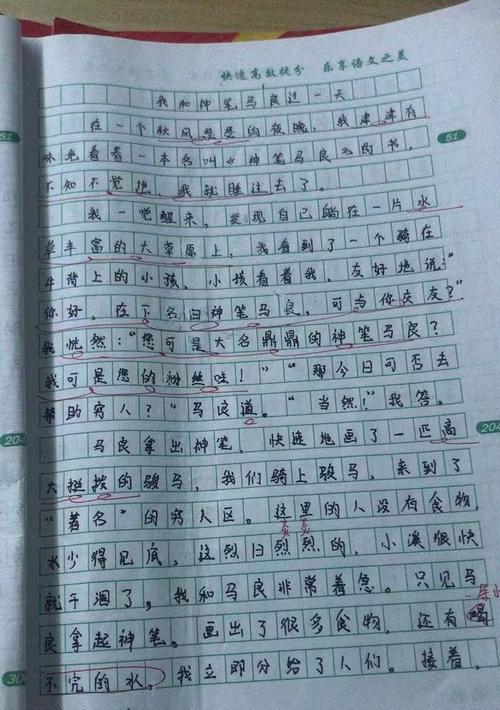 快速高效提分 乐享语文之美
我和神笔马良过一天
在一个秋风瑟瑟的夜晚，我津津有
味地看着一本名叫《神笔马良》的书，
不知不觉地，我就睡过去了。
我一觉醒来，发现自己躺在一片水
草丰富的大草原上，我看到了一个骑在
牛背上的小孩，小孩看着我，友好地说：“
你好，在下名曰神笔马良，可与你交友？”
我恍然：“您可是大名鼎鼎的神笔马良？
我可是您的粉丝哇！”“那今日可否去
帮助穷人？”马良道。“当然！”我答。
马良拿出神笔，快速地画了一匹高
大挺拔的骏马，我们骑上骏马，来到了
“著名”的穷人区。这里的人没有食物，
水少得见底，这烈日烈烈的，小溪很快
就干涸了，我和马良非常着急。只见马
良拿起神笔。画出了很多食物，还有喝
不完的水，我立即分给了人们。接着，
51
51
204
204
30